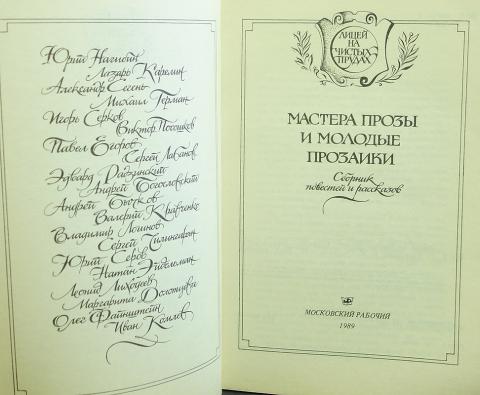 Юрий Нагибин
Лазарь Карелин
Александр Сегень
Михаил Герман
Игорь Серков
Виктор Посошков
Павел Егоров
Сергей Лабанов
Эдвард Радзинский
Андрей Богословский
Андрей Бычков
Валерий Кравченко
Владимир Логинов
Сергей Тилингаран
Юрий Серов
Натан Эйдельман
Леонид Лиходеев
Маргарита
Олег Файнштейн
Иван Комлев
ЛИЦЕЙ
НА
ЧИСТЫХ
ПРУДАХ
МАСТЕРА ПРОЗЫ
И МОЛОДЫЕ
ПРОЗАИКИ
Сборник
повестей и рассказов
МОСКОВСКИЙ РАБОЧИЙ
1989